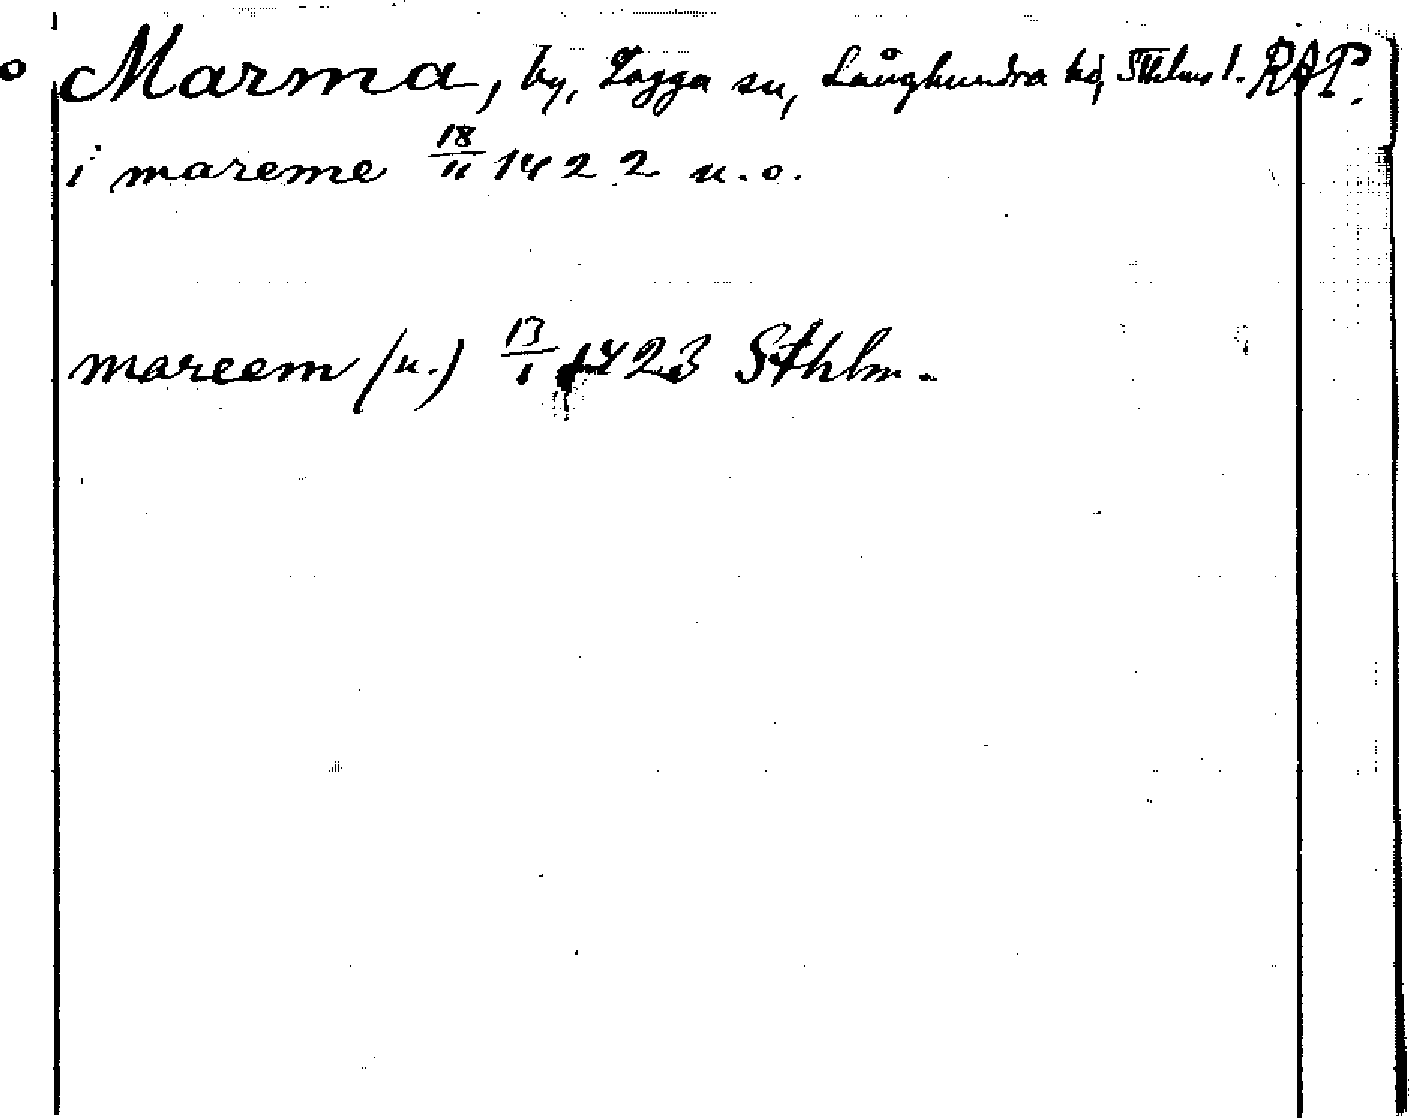 Marma, by, Lagga sn, Långhundra hd, Sthlms l. RAP.
i mareme 18/11 1422 u.o.
mareem (u.) 13/1 1423 Sthlm.